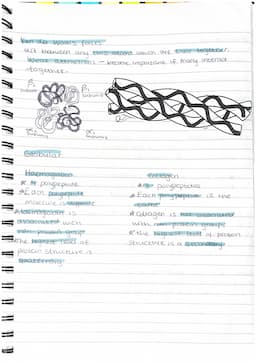 Van der Waals forces
act between any two atoms which are close together.
Weak attractions - become important if many interact
together.
β
β
α
α
Globular
Haemoglobin
Collagen
* polypeptide
* polypeptides
* Each polypeptide
molecule is
* Each polypeptide is the
same
* Haemoglobin is
associated with
non protein group
* Collagen is not associated
with non protein groups
* the highest level of
protein structure is
quaternary
* the highest level of protein
structure is a